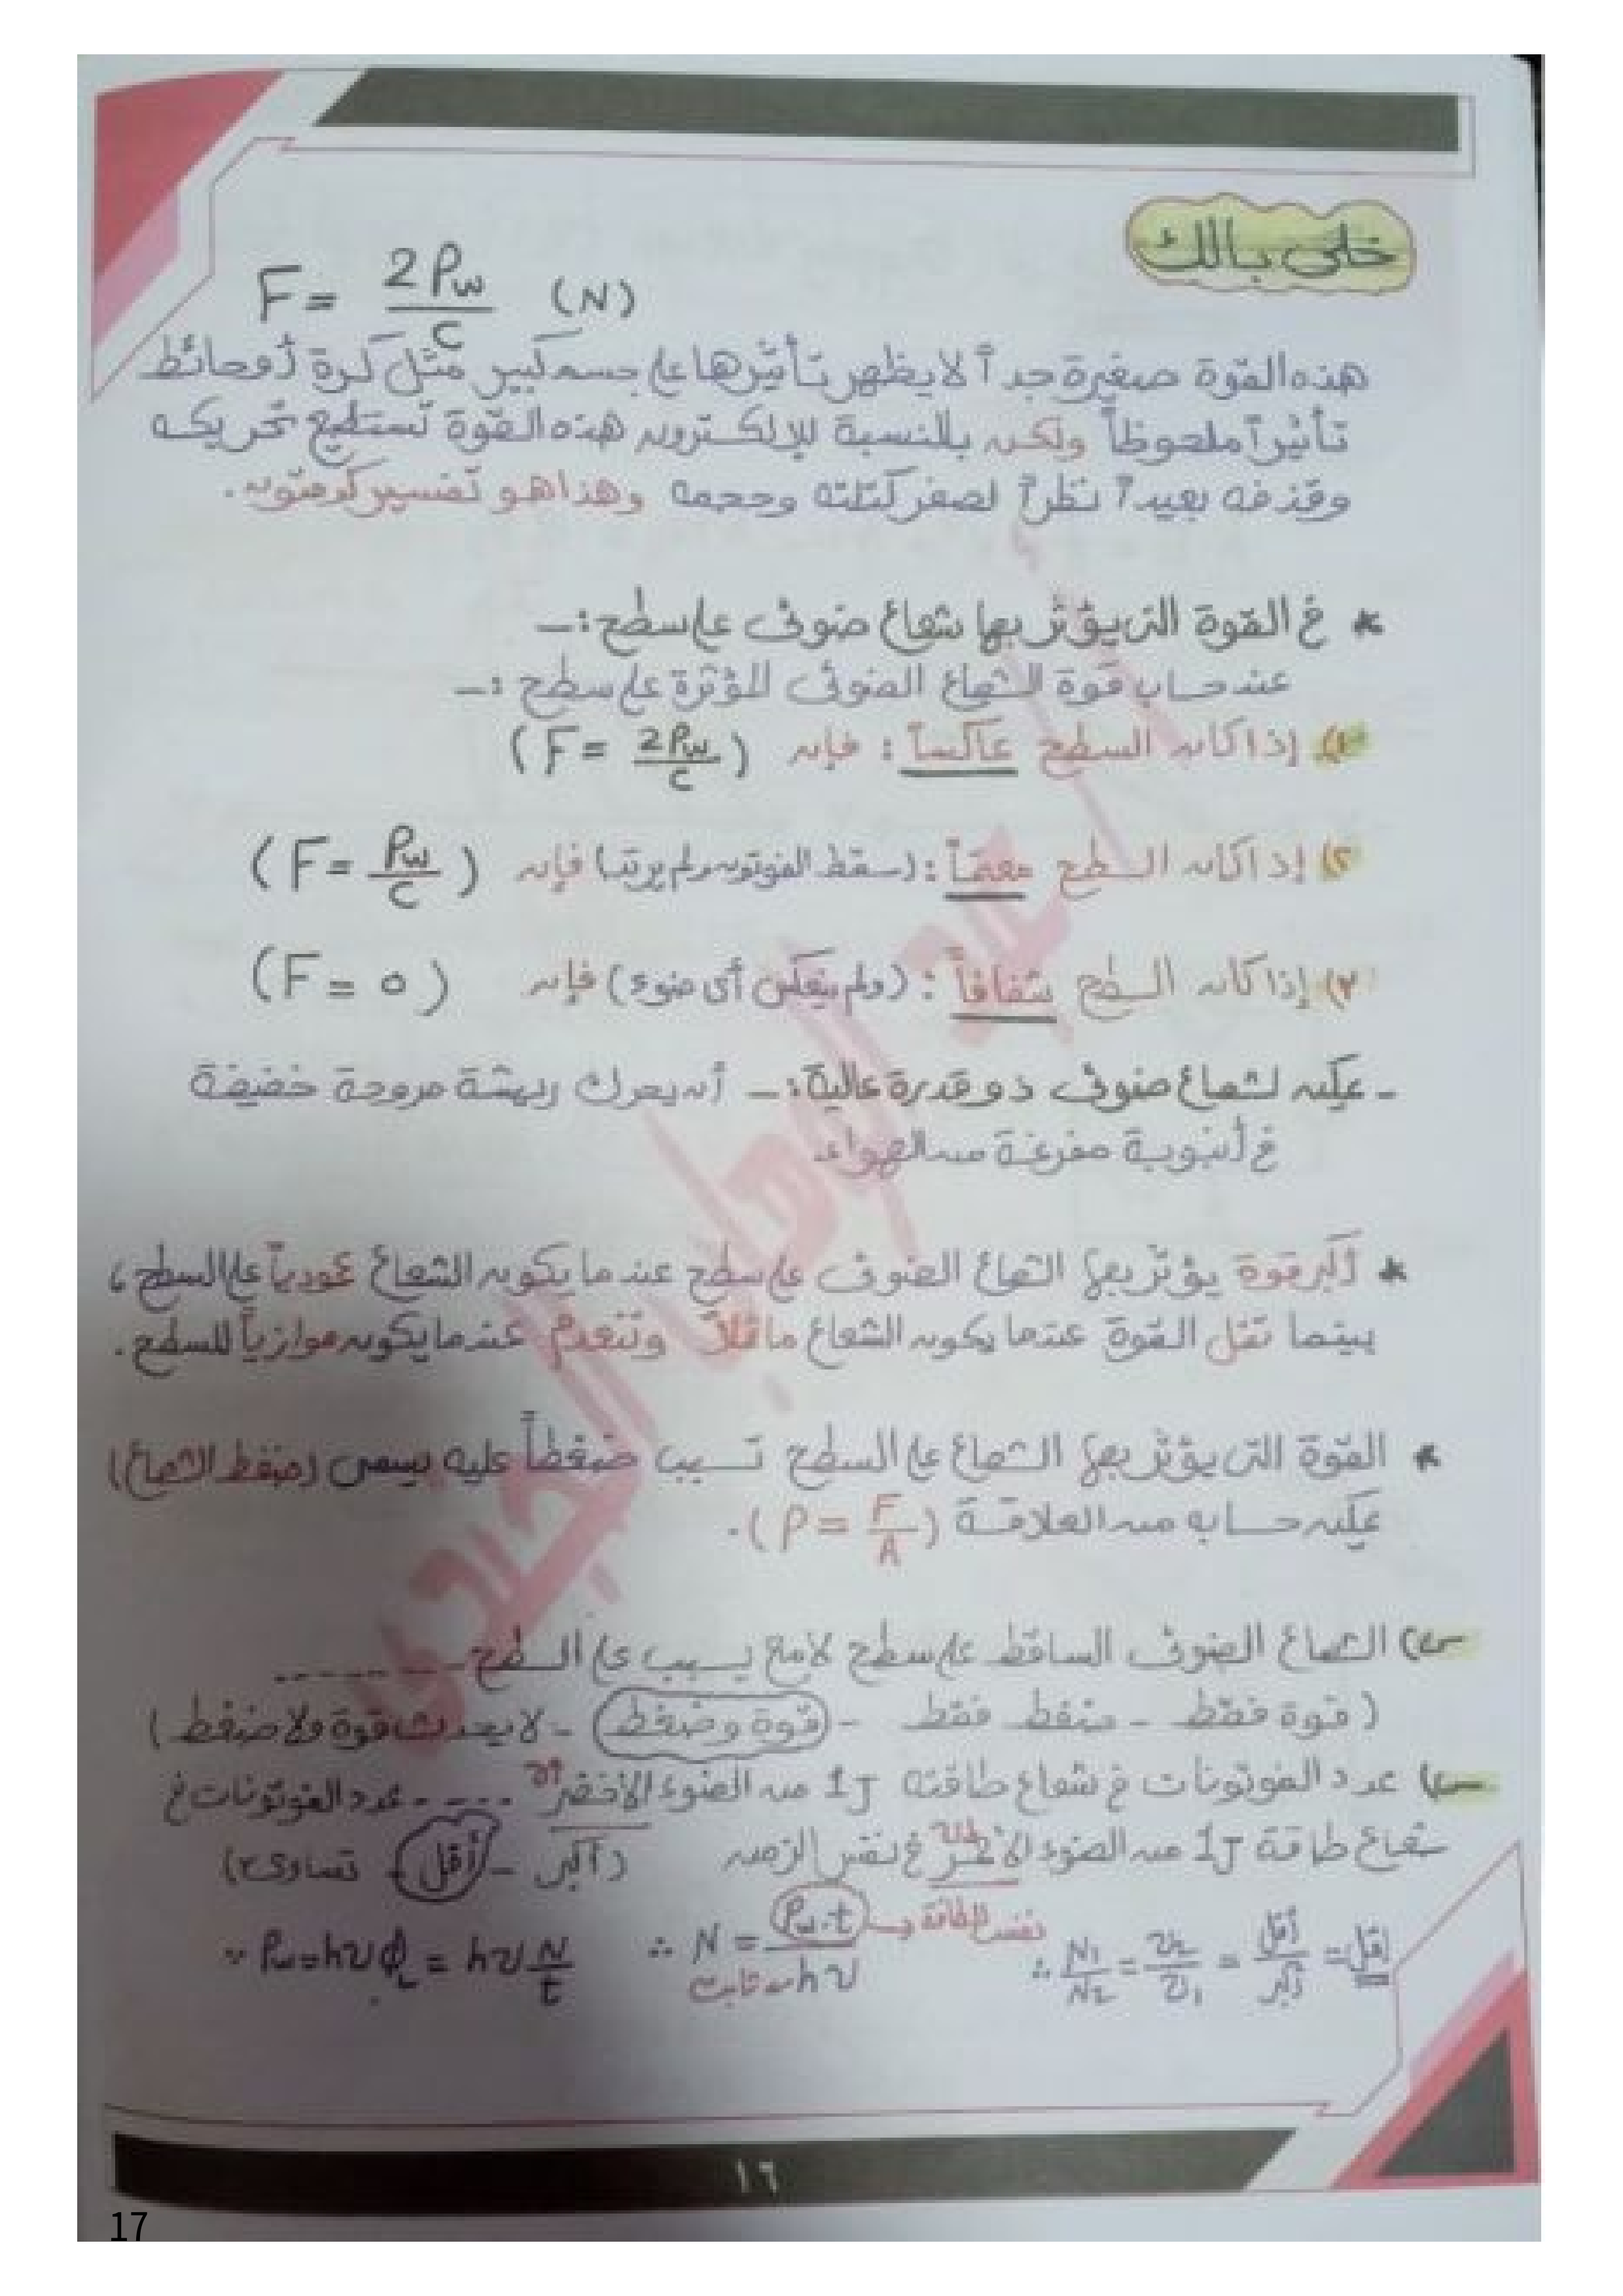 خلى بالك
F = 2Pw/c (N)
هذه القوة صغيرة جداً لا يظهر تأثيرها على جسم كبير مثل كرة أو حائط
تأثيراً ملحوظاً ولكن بالنسبة للإلكترون هذه القوة تستطيع تحريكه
وقذفه بعيداً نظراً لصغر كتلته وحجمه وهذا هو تفسير كومتون.
* في القوة التي يؤثر بها شعاع ضوئى على سطح :-
عند حساب قوة الشعاع الضوئى المؤثرة على سطح :-
١) إذا كان السطح عاكساً : فإن (F = 2Pw/c)
٢) إذا كان السطح معتماً : (سقط الفوتون ولم يرتد) فإن (F = Pw/c)
٣) إذا كان السطح شفافاً : (ولم ينعكس أى ضوء) فإن (F = 0)
- يمكن لشعاع ضوئى ذو قدرة عالية :- أن يحرك ريشة مروحة خفيفة
في أنبوبة مفرغة من الهواء.
* أكبر قوة يؤثر بها الشعاع الضوئى على سطح عندما يكون الشعاع عمودياً على السطح ،
بينما تقل القوة عندما يكون الشعاع مائلاً وتنعدم عندما يكون موازياً للسطح .
* القوة التى يؤثر بها الشعاع على السطح تسبب ضغطاً عليه يسمى (ضغط الشعاع)
يمكن حسابه من العلاقة (P = F/A) .
س) الشعاع الضوئى الساقط على سطح لامع يسبب على السطح - - - - - -
( قوة فقط - ضغط فقط - قوة وضغط - لا يحدث قوة ولا ضغط )
س) عدد الفوتونات في شعاع طاقته 1J من الضوء الأخضر .... عدد الفوتونات في
شعاع طاقة 1J من الضوء الأحمر في نفس الزمن (أكبر - أقل - تساوى)
∵ Pw = hυφL = hυ N/t ∴ N = Pw.t/hυ → نفس الطاقة ∴ N1/N2 = υ2/υ1 = أقل/أكبر = أقل
ثابت
١٦
17